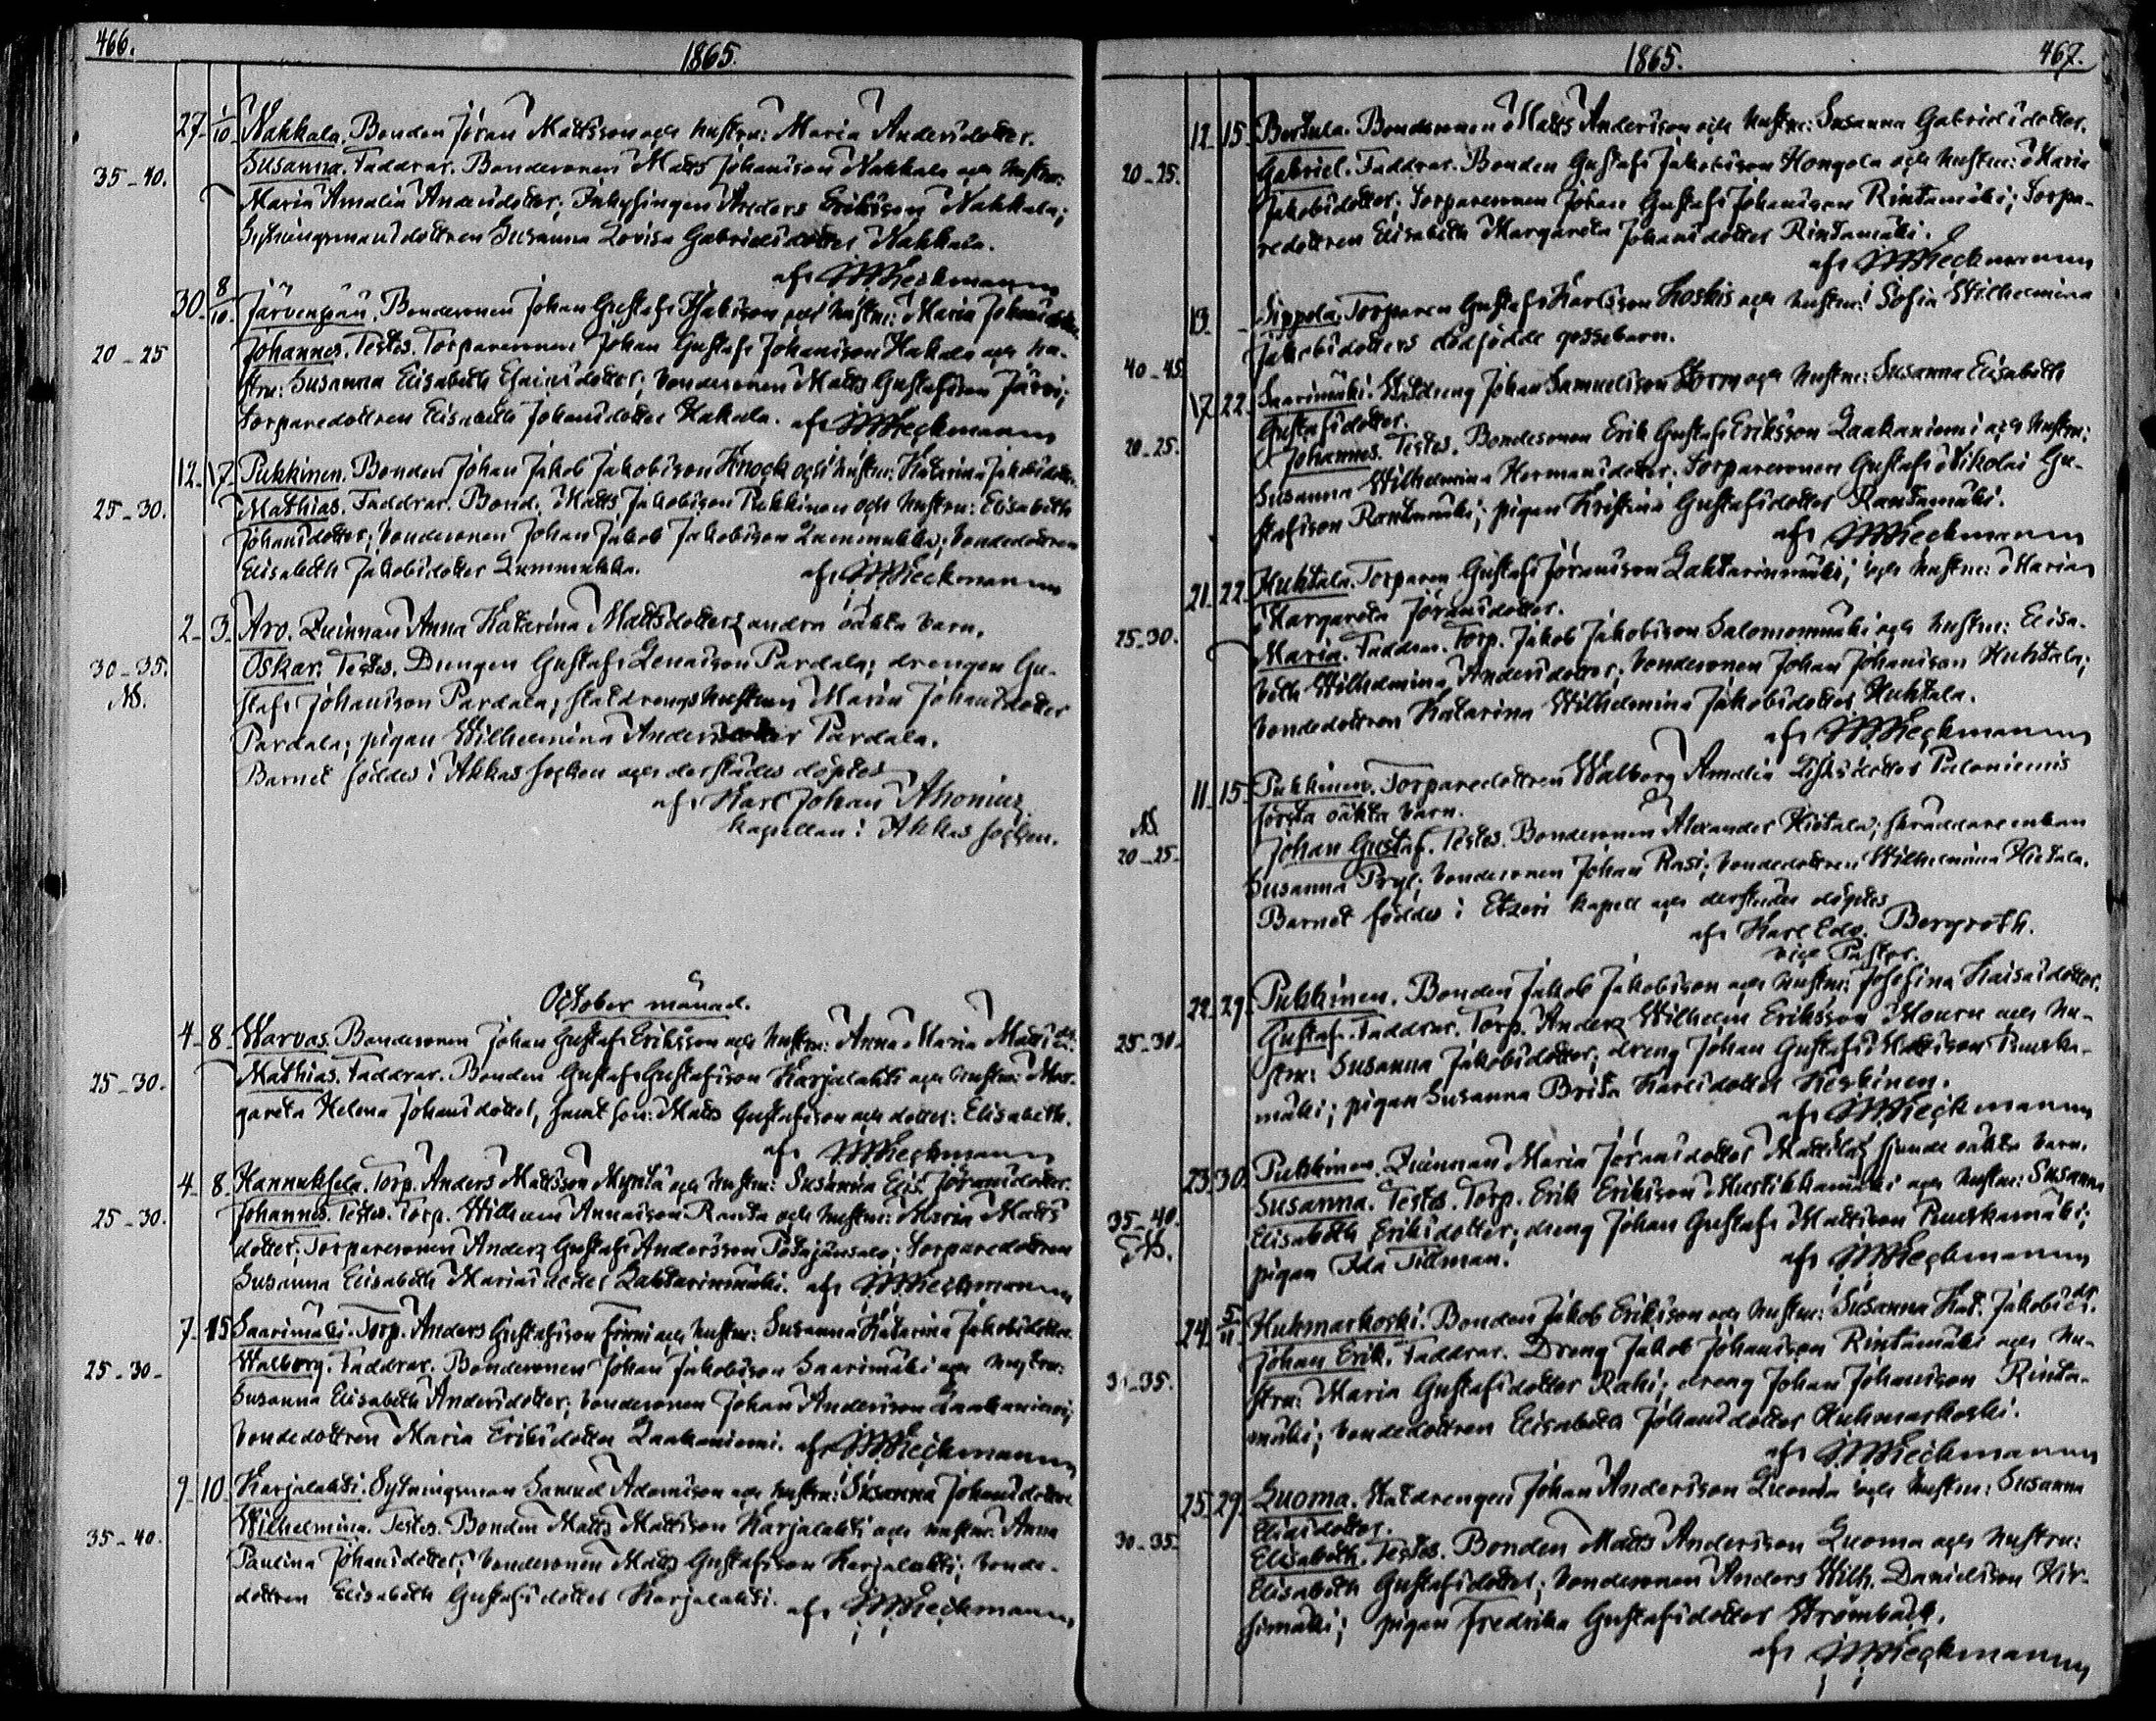 466.
1865.
27. 1/10 Nakkala. Bonden Jöran Mattsson och hustru: Maria Andersdotter.
35-40. Susanna. Faddrar. Bondesonen Matts Johansson Nakkala och hustru:
Maria Amalia Andersdotter; Inhysingen Anders Eriksson Nakkala;
Sytningsmansdottren Susanna Lovisa Gabrielsdotter Nakkala.
af Wieckmann
30. 8/10. Järvenpää. Bondesonen Johan Gustaf och hustru: Maria Johansdotter
20-25 Johannes. Testes. Torparesonen Johan Gustaf Johansson Hakala och hu-
stru: Susanna Elisabeth Esaiasdotter; bondesonen Matts Gustafsson Järvi;
torparedottren Elisabeth Johansdotter Hakala. af Wieckmann
12. 17. Pukkinen. Bonden Johan Jakob Jakobsson Knock och hustru: Katarina Jakobsdotter.
25-30. Mathias. Faddrar. Bond. Matts Jakobsson Pukkinen och hustru: Elisabeth
Johansdotter; bondesonen Johan Jakob Jakobsson Lummukka; bondedottren
Elisabeth Jakobsdotter Lummukka. af Wieckmann
2. 3. Aro. Quinnan Anna Katarina Mattsdotters andra oäkta barn.
30-35. Oskar. Testes. Drengen Gustaf Pardala; drengen Gu-
NB. staf Johansson Pardala; statdrengshustrun Maria Johansdotter
Pardala; pigan Wilhelmina Andersdotter Pardala.
Barnet föddes i Akkas socken och derstädes döptes
af Karl Johan Ahonius
kapellan i Akkas socken.
October månad.
4. 8. Warvas. Bondesonen Johan Gustaf Eriksson och hustru: Anna Maria Mattsdr.
25-30. Mathias. Faddrar. Bonden Gustaf Gustafsson Karjalahti och hustru: Mar-
gareta Helena Johansdotter, samt son: Matts Gustafsson och dotter: Elisabeth.
af Wieckmann
4. 8. Hannuksela. Torp. Anders Mattsson Myntä och hustru: Susanna Elis. Jöransdotter.
25-30. Johannes. Testes. Torp. Wilhelm Annaison Ranta och hustru: Maria Matts
dotter; Torparesonen Anders Gustaf Andersson Potajänsalo; torparedottren
Susanna Elisabeth Mariasdotter Lahtarinmäki. af Wieckmann
7. 15 Saarimäki. Torp. Anders Gustafsson Finni och hustru: Susanna Katarina Jakobsdotter.
25-30- Walborg. Faddrar. Bondesonen Johan Jakobsson Saarimäki och hustru:
Susanna Elisabeth Andersdotter; bondesonen Johan Andersson Laakaniemi;
bondedottren Maria Eriksdotter Laakaniemi. af Wieckmann
9. 10. Karjalahti. Sytningsman Samuel Adamsson och hustru: Susanna Johansdotter
35-40. Wilhelmina. Testes. Bonden Matts Mattsson Karjalahti och hustru: Anna
Paulina Johansdotter; bondesonen Matts Gustafsson Karjalahti; bonde-
dottren Elisabeth Gustafsdotter Karjalahti. af Wieckmann
1865.
467.
12. 15. Bertula. Bondesonen Matts Andersson och hustru: Susanna Gabrielsdotter.
20-25. Gabriel. Faddrar. Bonden Gustaf Jakobsson Hongola och hustru: Maria
Jakobsdotter; Torparesonen Johan Gustaf Johansson Rintamäki; Torpa-
redottren Elisabeth Margareta Johansdotter Rintamäki.
af Wieckmann
13. - Sippola. Torparen Gustaf Karlsson Koskis och hustrus Sofia Wilhelmina
40-45. Jakobsdotters dödfödde gossebarn.
17. 22. Saarimäki. Statdreng Johan Samuelsson Storm och hustru: Susanna Elisabeth
Gustafsdotter.
20-25. Johannes. Testes. Bondesonen Erik Gustaf Eriksson Laakaniemi och hustru:
Susanna Wilhelmina Hermansdotter; Torparesonen Gustaf Nikolai Gu-
stafsson Rantamäki; pigan Kristina Gustafsdotter Rantamäki.
af Wieckmann
21. 22. Huhtala. Torparen Gustaf Jöransson Lahtarinmäki; och hustru: Maria
Margareta Jöransdotter.
25-30. Maria. Faddrar. Torp. Jakob Jakobsson Salomonmäki och hustru: Elisa-
beth Wilhelmina Andersdotter; bondesonen Johan Johansson Huhtala;
bondedottren Katarina Wilhelmina Jakobsdotter Huhtala.
af Wieckmann
11. 15. Pukkinen. Torparedottren Walborg Amalia Paloniemis
NB. första oäkta barn.
20-25. Johan Gustaf. Testes. Bondesonen Alexander Hietala; skräddareenkan
Susanna Pryl; bondesonen Johan Rasi; bondedottren Wilhelmina Hietala.
Barnet föddes i Etseri kapell och derstädes döptes
af Karl Edv. Bergroth.
vice Pastor.
22. 29. Pukkinen. Bonden Jakob Jakobsson och hustru: Josefina Kaisasdotter.
25-30. Gustaf. Faddrar. Torp. Anders Wilhelm Eriksson och hu-
stru: Susanna Jakobsdotter; dreng Johan Gustaf Mattsson Ruuska-
mäki; pigan Susanna Brita Karlsdotter Keskinen.
af Wieckmann
23. 30. Pukkinen. Quinnan Maria Jöransdotter Mattilas sjunde oäkta barn.
35-40. Susanna. Testes. Torp. Erik Eriksson Mustikkamäki och hustru: Susanna
NB. Elisabeth Eriksdotter; dreng Johan Gustaf Mattsson Ruuskamäki;
pigan Ida Tillman. af Wieckmann
24. 5/11 Huhmarkoski. Bonden Jakob Eriksson och hustru: Susanna Kat. Jakobsdr.
30-35. Johan Erik. Faddrar. Dreng Jakob Johansson Rintamäki och hu-
stru: Maria Gustafsdotter Rahi; dreng Johan Johansson Rinta-
mäki; bondedottren Elisabeth Johansdotter Huhmarkoski.
af Wieckmann
25. 29. Luoma. Statdrengen Johan Andersson Luoma och hustru: Susanna
Eliasdotter.
30-35. Elisabeth. Testes. Bonden Matts Andersson Luoma och hustru:
Elisabeth Gustafsdotter; bondesonen Anders Wilh. Danielsson Hir-
simäki; pigan Fredrika Gustafsdotter Strömbäck.
af Wieckmann